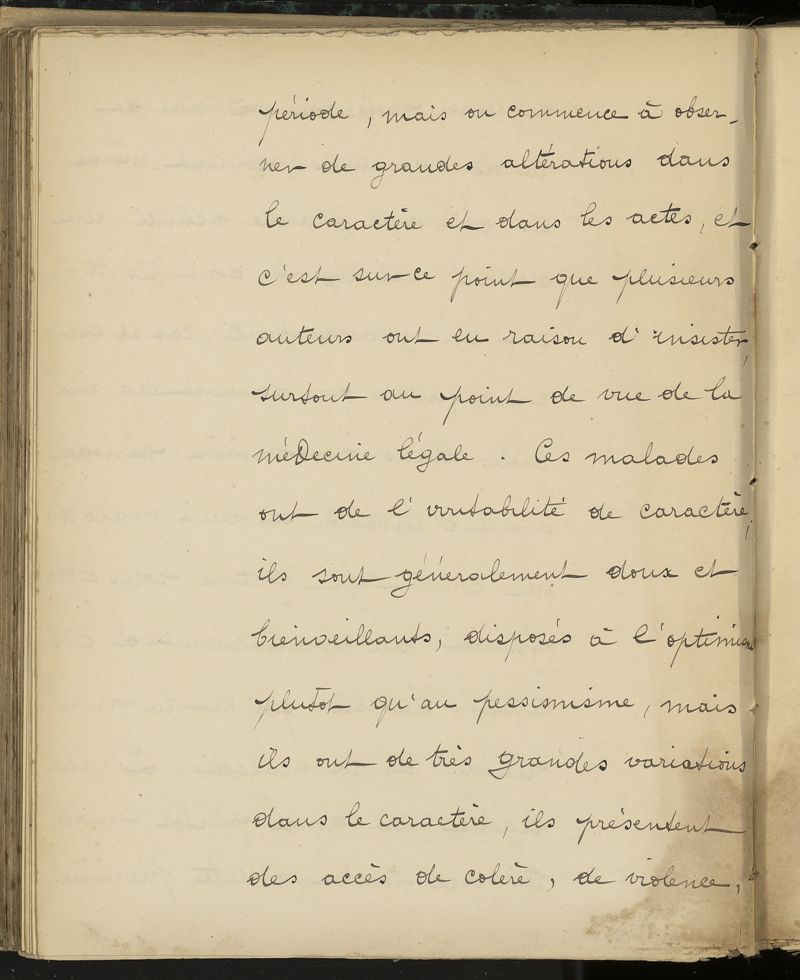 période, mais on commence à obser-
ver de grandes altérations dans
le caractère et dans les actes, et
c'est sur ce point que plusieurs
auteurs ont eu raison d'insister,
surtout au point de vue de la
médecine légale. Ces malades
ont de l'irritabilité de caractère,
ils sont généralement doux et
bienveillants, disposés à l'optimisme
plutôt qu'au pessismisme, mais
ils ont de très grandes variations
dans le caractère, ils présentent
des accès de colère, de violence,